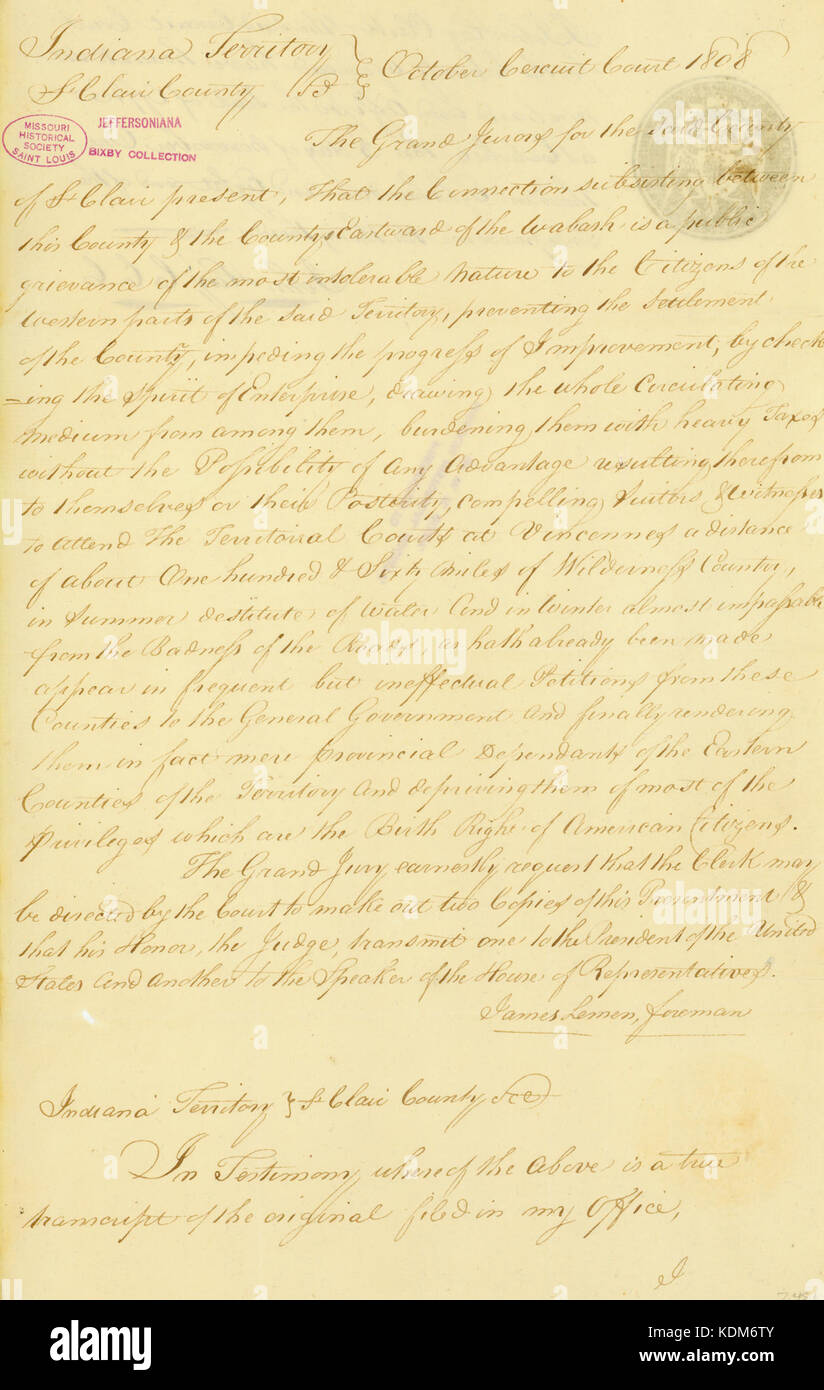 Indiana Territory
St Clair County Sct } October Cercuit Court 1808
MISSOURI HISTORICAL SOCIETY SAINT LOUIS
JEFFERSONIANA
BIXBY COLLECTION
The Grand Jurors for the said County
of St Clair present, That the Connection subsisting between
this County & the Countys Eastward of the Wabash is a public
grievance of the most intolerable Nature to the Citizens of the
Western parts of the said Territory, preventing the Settlement
of the County, impeding the progress of Improvement, by check
=ing the Spirit of Enterprise, drawing the whole Circulating
medium from among them, burdening them with heavy Taxes
without the Possibility of any advantage resulting therefrom
to themselves or their Posterity, compelling Suitors & Witnesses
to attend The Territoiral Courts at Vincennes a distance
of about One hundred & Sixty miles of Wilderness Country,
in Summer destitute of Water and in Winter almost impassable
from the Badness of the Roads, as hath already been made
appear in frequent but ineffectual Petitions from these
Counties to the General Government and finally rendering
them in fact mere provincial Dependants of the Eastern
Counties of the Territory and depriving them of most of the
privileges which are the Birth Right of American Citizens.
The Grand Jury earnestly request that the Clerk may
be directed by the Court to make out two Copies of this Presentment &
that his Honor, the Judge, transmit one to the President of the United
States and another to the Speaker of the House of Representatives.
James Lemen, foreman
Indiana Territory } St Clair County Sct
In Testimony whereof the above is a true
transcript of the original filed in my Office,
I
alamy
Image ID: KDM6TY
www.alamy.com